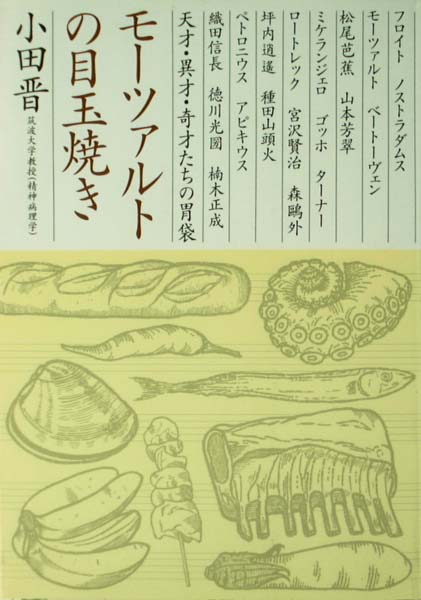 フロイト ノストラダムス
モーツァルト ベートーヴェン
松尾芭蕉 山本芳翠
ミケランジェロ ゴッホ ターナー
ロートレック 宮沢賢治 森鷗外
坪内逍遙 種田山頭火
ペトロニウス アピキウス
織田信長 徳川光圀 楠木正成
天才・異才・奇才たちの胃袋
モーツァルト
の目玉焼き
小田晋
筑波大学教授(精神病理学)